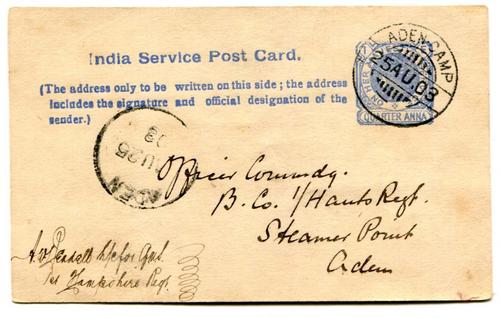 India Service Post Card.
(The address only to be written on this side; the address
includes the signature and official designation of the
sender.)
ADEN-CAMP
25 AU.03
QUARTER ANNA
ADEN
AU 25
03
Officer Commdg.
B. Co. 1/Hants Regt.
Steamer Point
Aden
for Qml.
1st Hampshire Regt